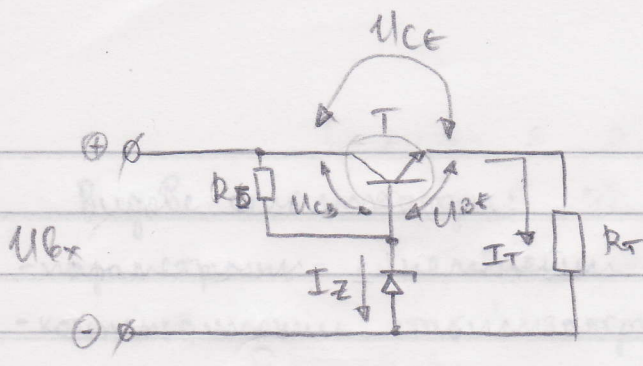 UCE
T
+
RБ
UCB
UBE
Uвх
IZ
IT
RT
-